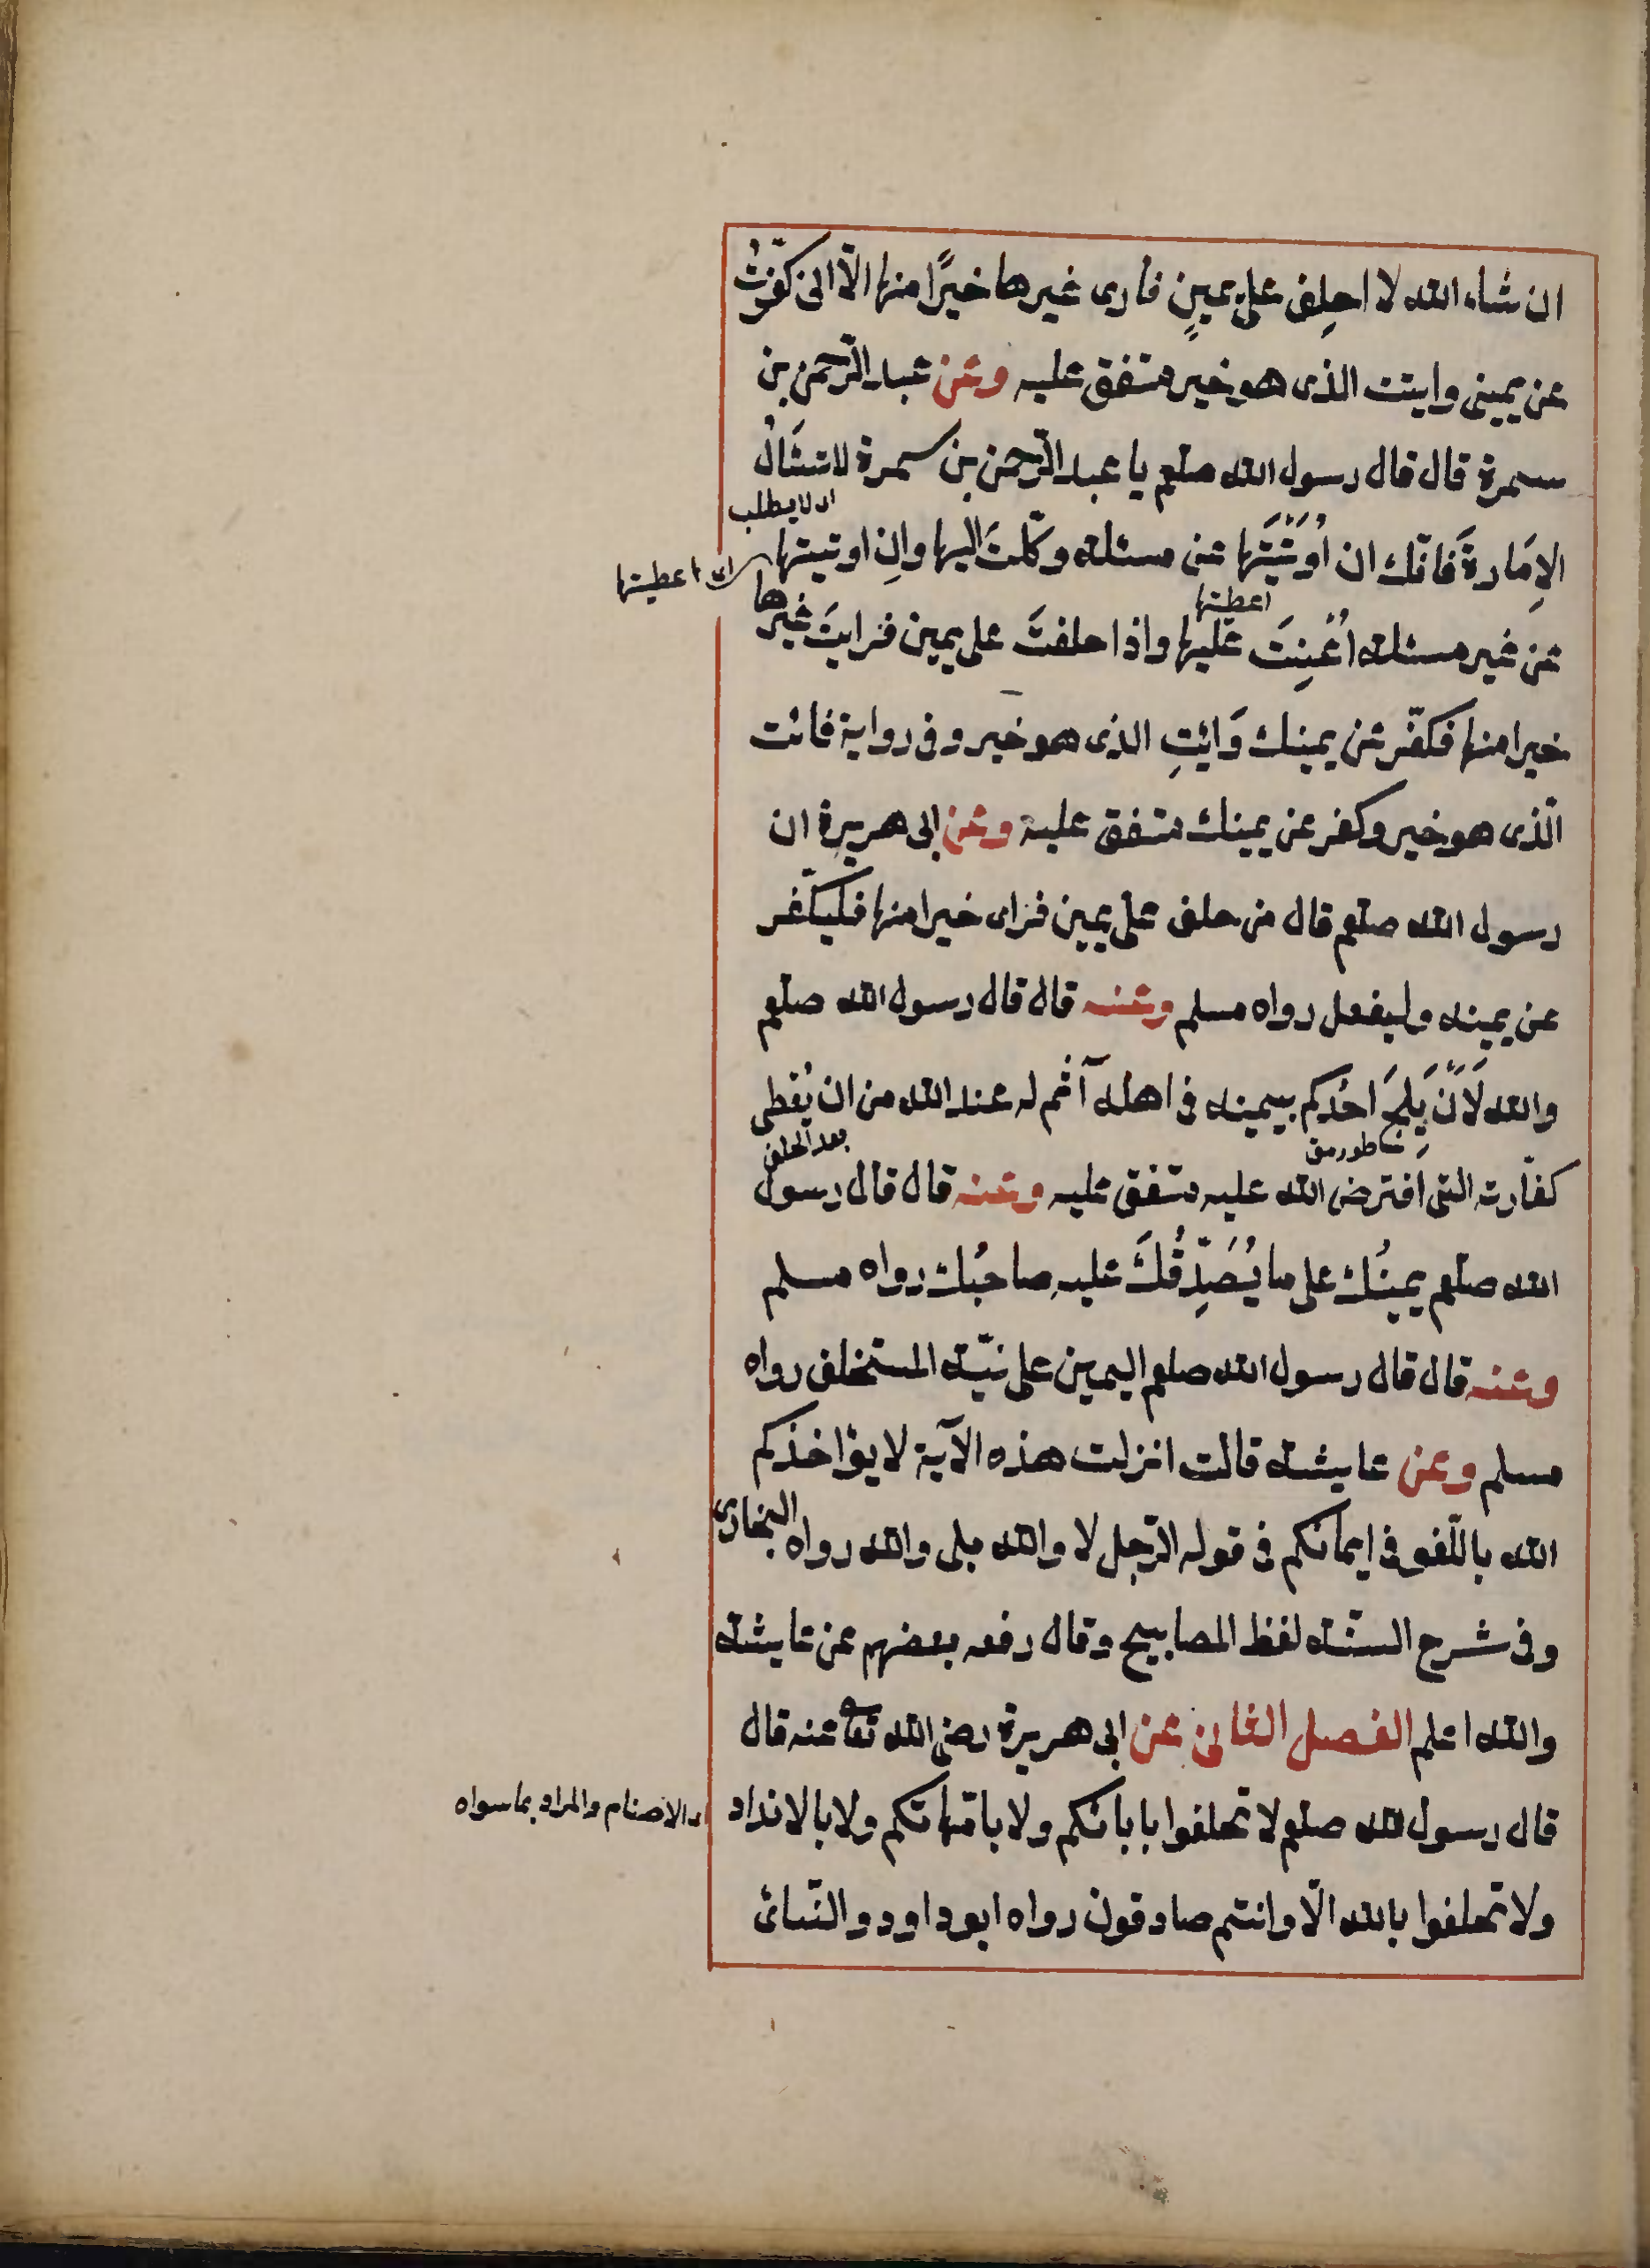 ان شاء الله لا احلِف على يمينٍ فارى غيرها خيرًا منها الّا انى كفّرتُ
عن يمينى وايتت الذى هو خير متفق عليه وعن عبد الرّحمن بن
سمرة قال قال رسول الله صلعم يا عبد الرّحمن بن سمرة لا تسَٔال
اى لا يطلب
الاِمَارةَ فانّك ان اُوتِيْتَها عن مسئلة وكّلتَ اليها واِن اوتيتها
اى اعطيتها
اعطيتها
عن غير مسئلة اُعْنِتَ عليها واذا حلفتَ على يمين فرايتَ غيرها
خيرا منها فكفّر عن يمينك وَائتِ الذى هو خير وفى رواية فائت
الّذى هو خير وكفر عن يمينك متفق عليه وعن ابى هريرة ان
رسول الله صلعم قال من حلف على يمين فراى خيرا منها فليكفّر
عن يمينه وليفعل رواه مسلم وعنه قال قال رسول الله صلعم
والله لَاَنْ يَلِجَّ احُدكم بيمينه فى اهله آثم له عند الله من ان يُعْطى
بعد الحلف
كفّارته التى افترض الله عليه متفق عليه وعنه قال قال رسول
الله صلعم يمينُك على ما يُصَدِّقُكَ عليه صاحبُك رواه مسلم
وعنه قال قال رسول الله صلعم اليمين على نيّة المستحلف رواه
مسلم وعن عايشة قالت انزلت هذه الآية لا يؤاخذكم
الله باللّغو فى ايمانكم فى قوله الرّجل لا والله بلى والله رواه البخارى
وفى شرح السنّة لفظ المصابيح وقال رفعه بعضهم عن عايشة
والله اعلم الفصل الثانى عن ابى هريرة رضى الله تعا عنه قال
قال رسول الله صلعم لا تحلفوا بابائكم ولا بامّهاتكم ولا بالانداد
اى الاصنام والمراد بما سواه
ولا تحلفوا بالله الّا وانتم صادقون رواه ابو داود والنّسائ